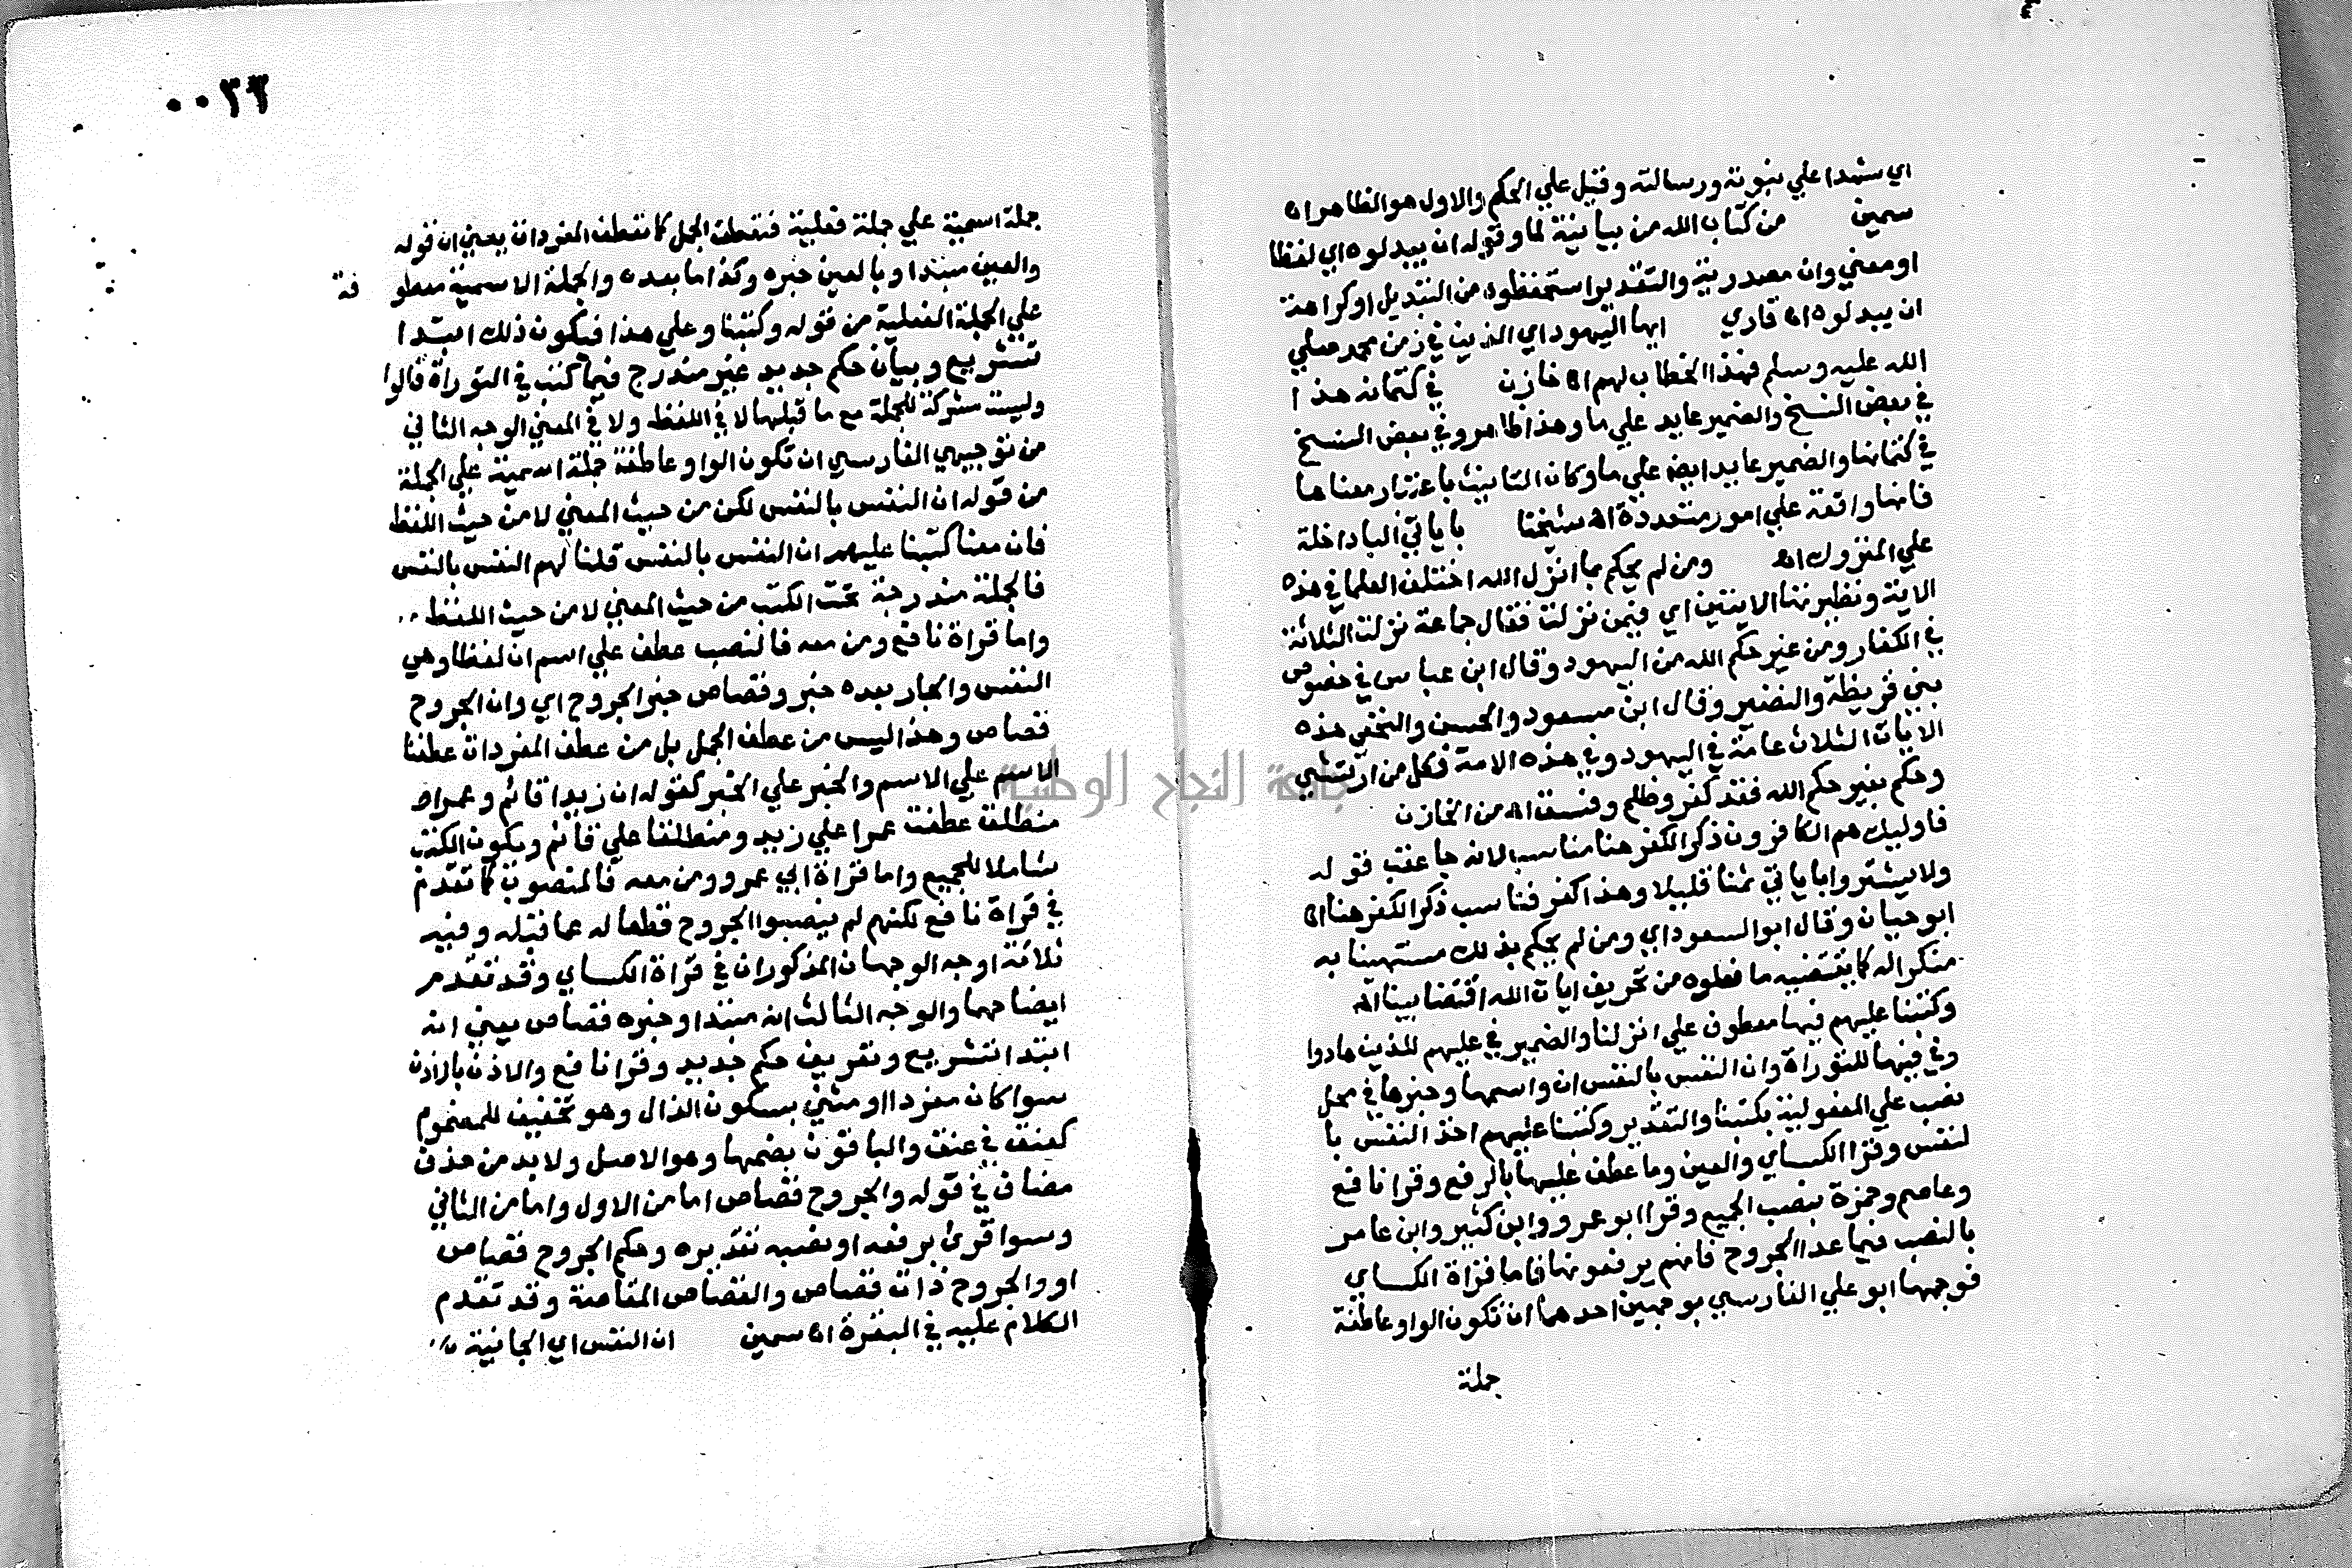 اي شهدا علي نبوته ورسالته وقيل علي الحكم والاول هو الظاهر اه
سمين من كتاب الله من بيانية لما وقوله ان يبدلوه اي لفظا
او معني وان مصدرية والتقدير استحفظوه من التبديل او كراهة
ان يبدلوه اه قاري ايها اليهود اي الذين في زمن محمد صلي
الله عليه وسلم فهذا الخطاب لهم اه خازن في كتمانه هذا
في بعض النسخ والضمير عايد علي ما وهذا ظاهر وفي بعض النسخ
في كتمانها والضمير عايد ايضا علي ما وكان التانيث باعتبار معناها
فانها واقعة علي امور متعددة اه شيخنا باياتي البا داخلة
علي المنزول اه ومن لم يحكم بما انزل الله اختلف العلما في هذه
الاية ونظيرتها الايتين اي فيمن نزلت فقال جماعة نزلت الثلاثة
في الكفار ومن غير حكم الله من اليهود وقال ابن عباس في خصوص
بني قريظة والنضير وقال ابن مسعود والحسن والنخعي هذه
الايات الثلاث عامة في اليهود وفي هذه الامة فكل من ارتشي
وحكم بغير حكم الله فقد كفر وظلم وفسق اه من الخازن
فاوليك هم الكافرون ذكر الكفر هنا مناسب لانه جا عقب قوله
ولا يشتروا باياتي ثمنا قليلا وهذا كفر فناسب ذكر الكفر هنا اه
ابو حيان وقال ابو السعود اي ومن لم يحكم بذلك مستهينا به
منكرا له كما يقتضيه ما فعلوه من تحريف ايات الله اقتضا بينا اه
وكتبنا عليهم فيها معطوف علي انزلنا والضمير في عليهم للذين هادوا
وفي فيها للتوراة وان النفس بالنفس ان واسمها وخبرها في محل
نصب علي المفعولية بكتبنا والتقدير وكتبنا عليهم اخذ النفس با
لنفس وقرا الكساي والعين وما عطف عليها بالرفع وقرا نافع
وعاصم وحمزة بنصب الجميع وقرا ابو عمرو وابن كثير وابن عامر
بالنصب فيما عدا الجروح فانهم يرفعونها فاما قراة الكساي
فوجهها ابو علي الفارسي بوجهين احدهما ان تكون الواو عاطفة
جملة
٠٠٣٣
جملة اسمية علي جملة فعلية فتعطف الجمل كما تعطف المفردات يعني ان قوله
والعين مبتدا وبالعين خبره وكذا ما بعده والجملة الاسمية معطو فة
علي الجملة الفعلية من قوله وكتبنا وعلي هذا فيكون ذلك ابتدا
تشريع وبيان حكم جديد غير مندرج فيما كتب في التوراة قالوا
وليست مشركة للجملة مع ما قبلها لا في اللفظ ولا في المعني الوجه الثاني
من توجيهي الفارسي ان تكون الواو عاطفة جملة اسمية علي الجملة
من قوله ان النفس بالنفس لكن من حيث المعني لا من حيث اللفظ
فان معنا كتبنا عليهم ان النفس بالنفس قلنا لهم النفس بالنفس
فالجملة مندرجة تحت الكتب من حيث المعني لا من حيث اللفظ
واما قراة نافع ومن معه فالنصب عطف علي اسم ان لفظا وهي
النفس والجار بعده خبر وقصاص خبر الجروح اي وان الجروح
قصاص وهذا ليس من عطف الجمل بل من عطف المفردات عطفنا
الاسم علي الاسم والخبر علي الخبر كقوله ان زيدا قائم وعمرا
منطلق عطفت عمرا علي زيد ومنطلقا علي قائم ويكون الكتب
شاملا للجميع واما قراة ابي عمرو ومن معه فالمنصوب كما تقدم
في قراة نافع لكنهم لم ينصبوا الجروح قطعا له عما قبله وفيه
ثلاثة اوجه الوجهان المذكوران في قراة الكساي وقد تقدم
ايضاحهما والوجه الثالث انه مبتدا وخبره قصاص يعني انه
ابتدا تشريع وتعريف حكم جديد وقرا نافع والاذن بالاذن
سوا كان مفردا او مثني بسكون الذال وهو تخفيف للمضموم
كعنق في عنق والباقون بضمها وهو الاصل ولا بد من حذف
مضاف في قوله والجروح قصاص اما من الاول واما من الثاني
وسوا قرئ برفعه او نصبه تقديره وحكم الجروح قصاص
او والجروح ذات قصاص والقصاص المقاصة وقد تقدم
الكلام عليه في البقرة اه سمين ان النفس اي الجانية
جامعة النجاح الوطنية